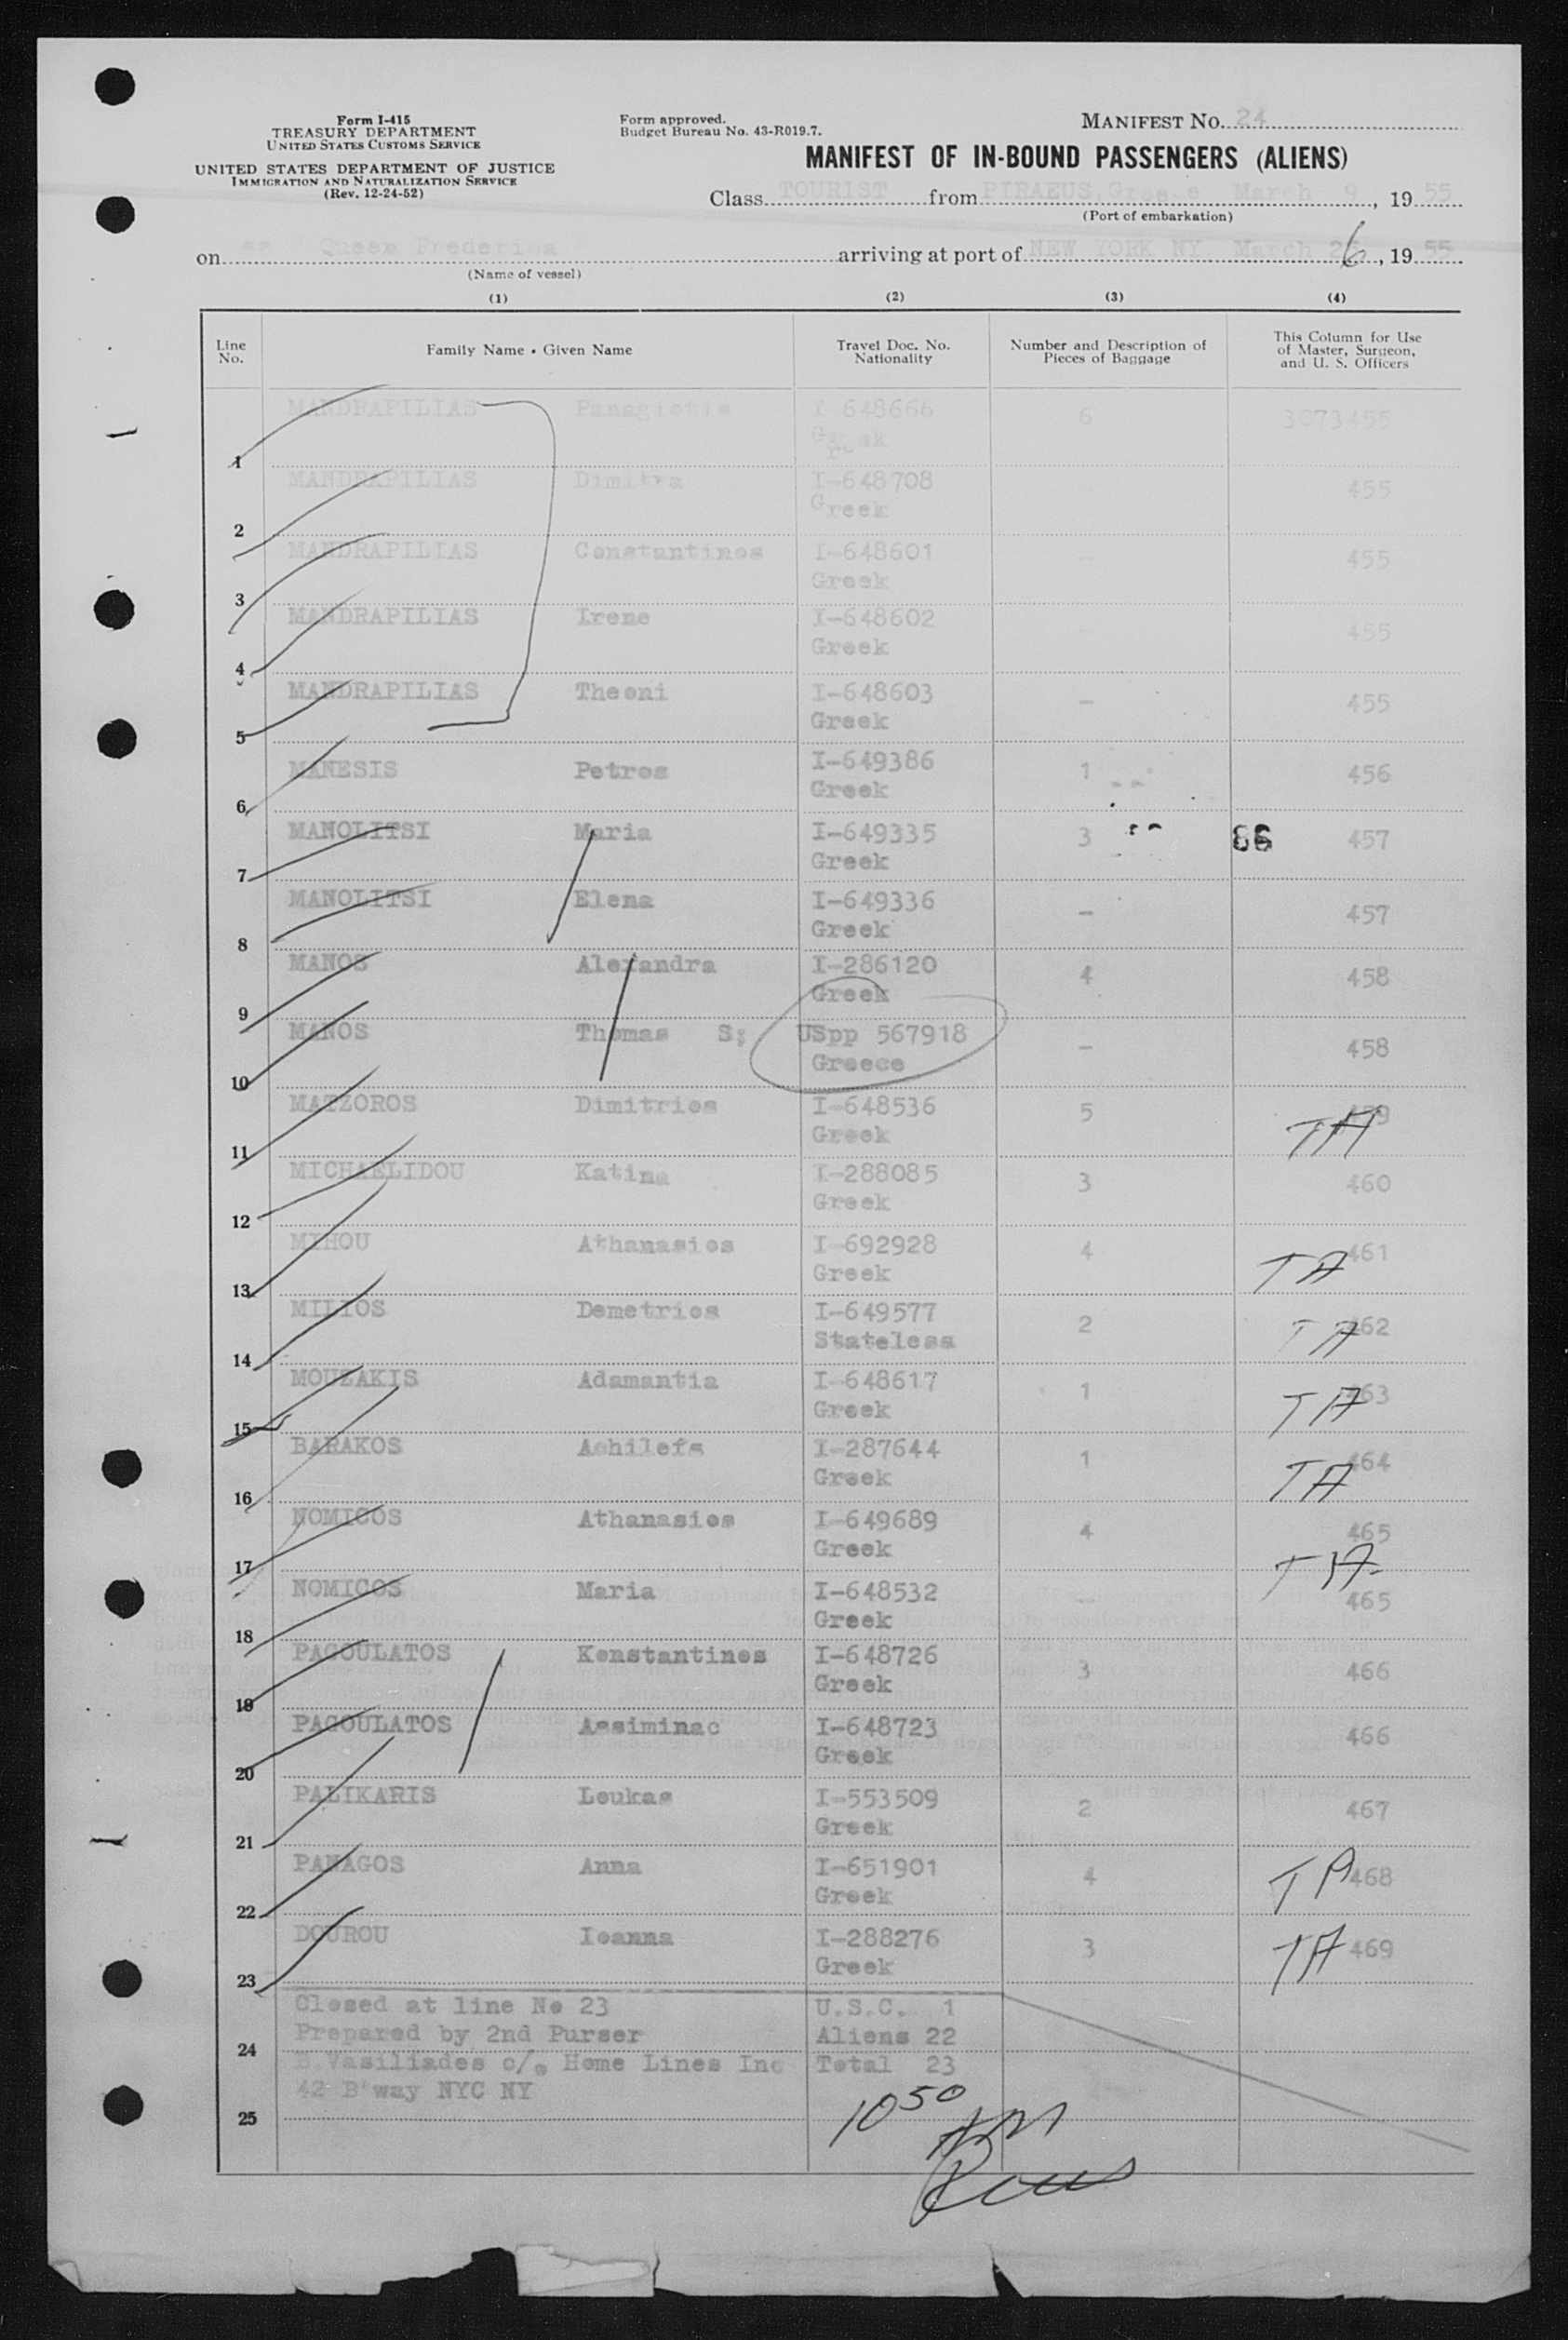 Form I-415
TREASURY DEPARTMENT
UNITED STATES CUSTOMS SERVICE
UNITED STATES DEPARTMENT OF JUSTICE
IMMIGRATION AND NATURALIZATION SERVICE
(Rev. 12-24-52)
Form approved.
Budget Bureau No. 43-R019.7.
MANIFEST NO. 24
MANIFEST OF IN-BOUND PASSENGERS (ALIENS)
Class TOURIST from PIRAEUS, Greece March 9, 19 55
(Port of embarkation)
on ss " Queen Frederica " arriving at port of NEW YORK NY. March 26, 19 55
(Name of vessel)
(1) (2) (3) (4)
Line No. Family Name • Given Name Travel Doc. No. Nationality Number and Description of Pieces of Baggage This Column for Use of Master, Surgeon, and U. S. Officers
1 MANDRAPILIAS Panagiotis I 648666 6 3073455
Greek
2 MANDRAPILIAS Dimitra I-648708 455
Greek
3 MANDRAPILIAS Constantinos I-648601 - 455
Greek
4 MANDRAPILIAS Irene I-648602 455
Greek
5 MANDRAPILIAS Theoni I-648603 - 455
Greek
6 MANESIS Petros I-649386 1 456
Greek
7 MANOLITSI Maria I-649335 3 86 457
Greek
8 MANOLITSI Elena I-649336 - 457
Greek
9 MANOS Alexandra I-286120 4 458
Greek
10 MANOS Thomas S; USpp 567918 - 458
Greece
11 MATZOROS Dimitrios I-648536 5 459 TA
Greek
12 MICHAELIDOU Katina I-288085 3 460
Greek
13 MIHOU Athanasios I-692928 4 461 TA
Greek
14 MILIOS Demetrios I-649577 2 462 TA
Stateless
15 MOUZAKIS Adamantia I-648617 1 463 TA
Greek
16 BARAKOS Achilefs I-287644 1 464 TA
Greek
17 NOMICOS Athanasios I-649689 4 465 TA
Greek
18 NOMICOS Maria I-648532 - 465
Greek
19 PAGOULATOS Konstantinos I-648726 3 466
Greek
20 PAGOULATOS Assiminac I-648723 466
Greek
21 PALIKARIS Loukas I-553509 2 467
Greek
22 PANAGOS Anna I-651901 4 TA 468
Greek
23 DOUROU Ioanna I-288276 3 TA 469
Greek
Closed at line No 23 U.S.C. 1
24 Prepared by 2nd Purser Aliens 22
B.Vasiliades c/o Home Lines Inc Total 23
42 B'way NYC NY
25
10 50